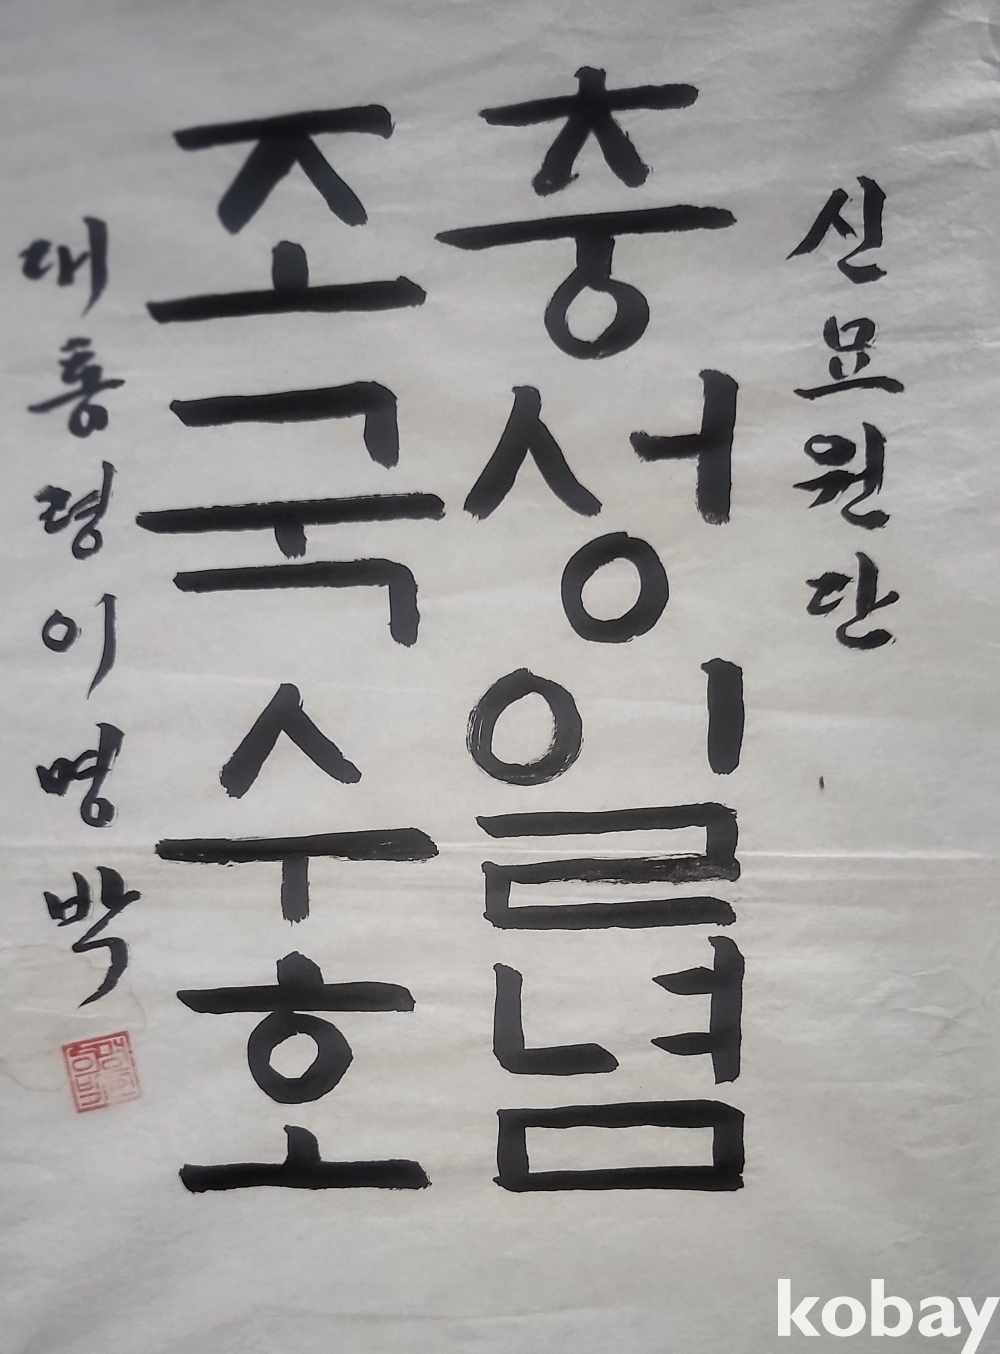 신묘원단
충성일념
조국수호
대통령이명박
kobay